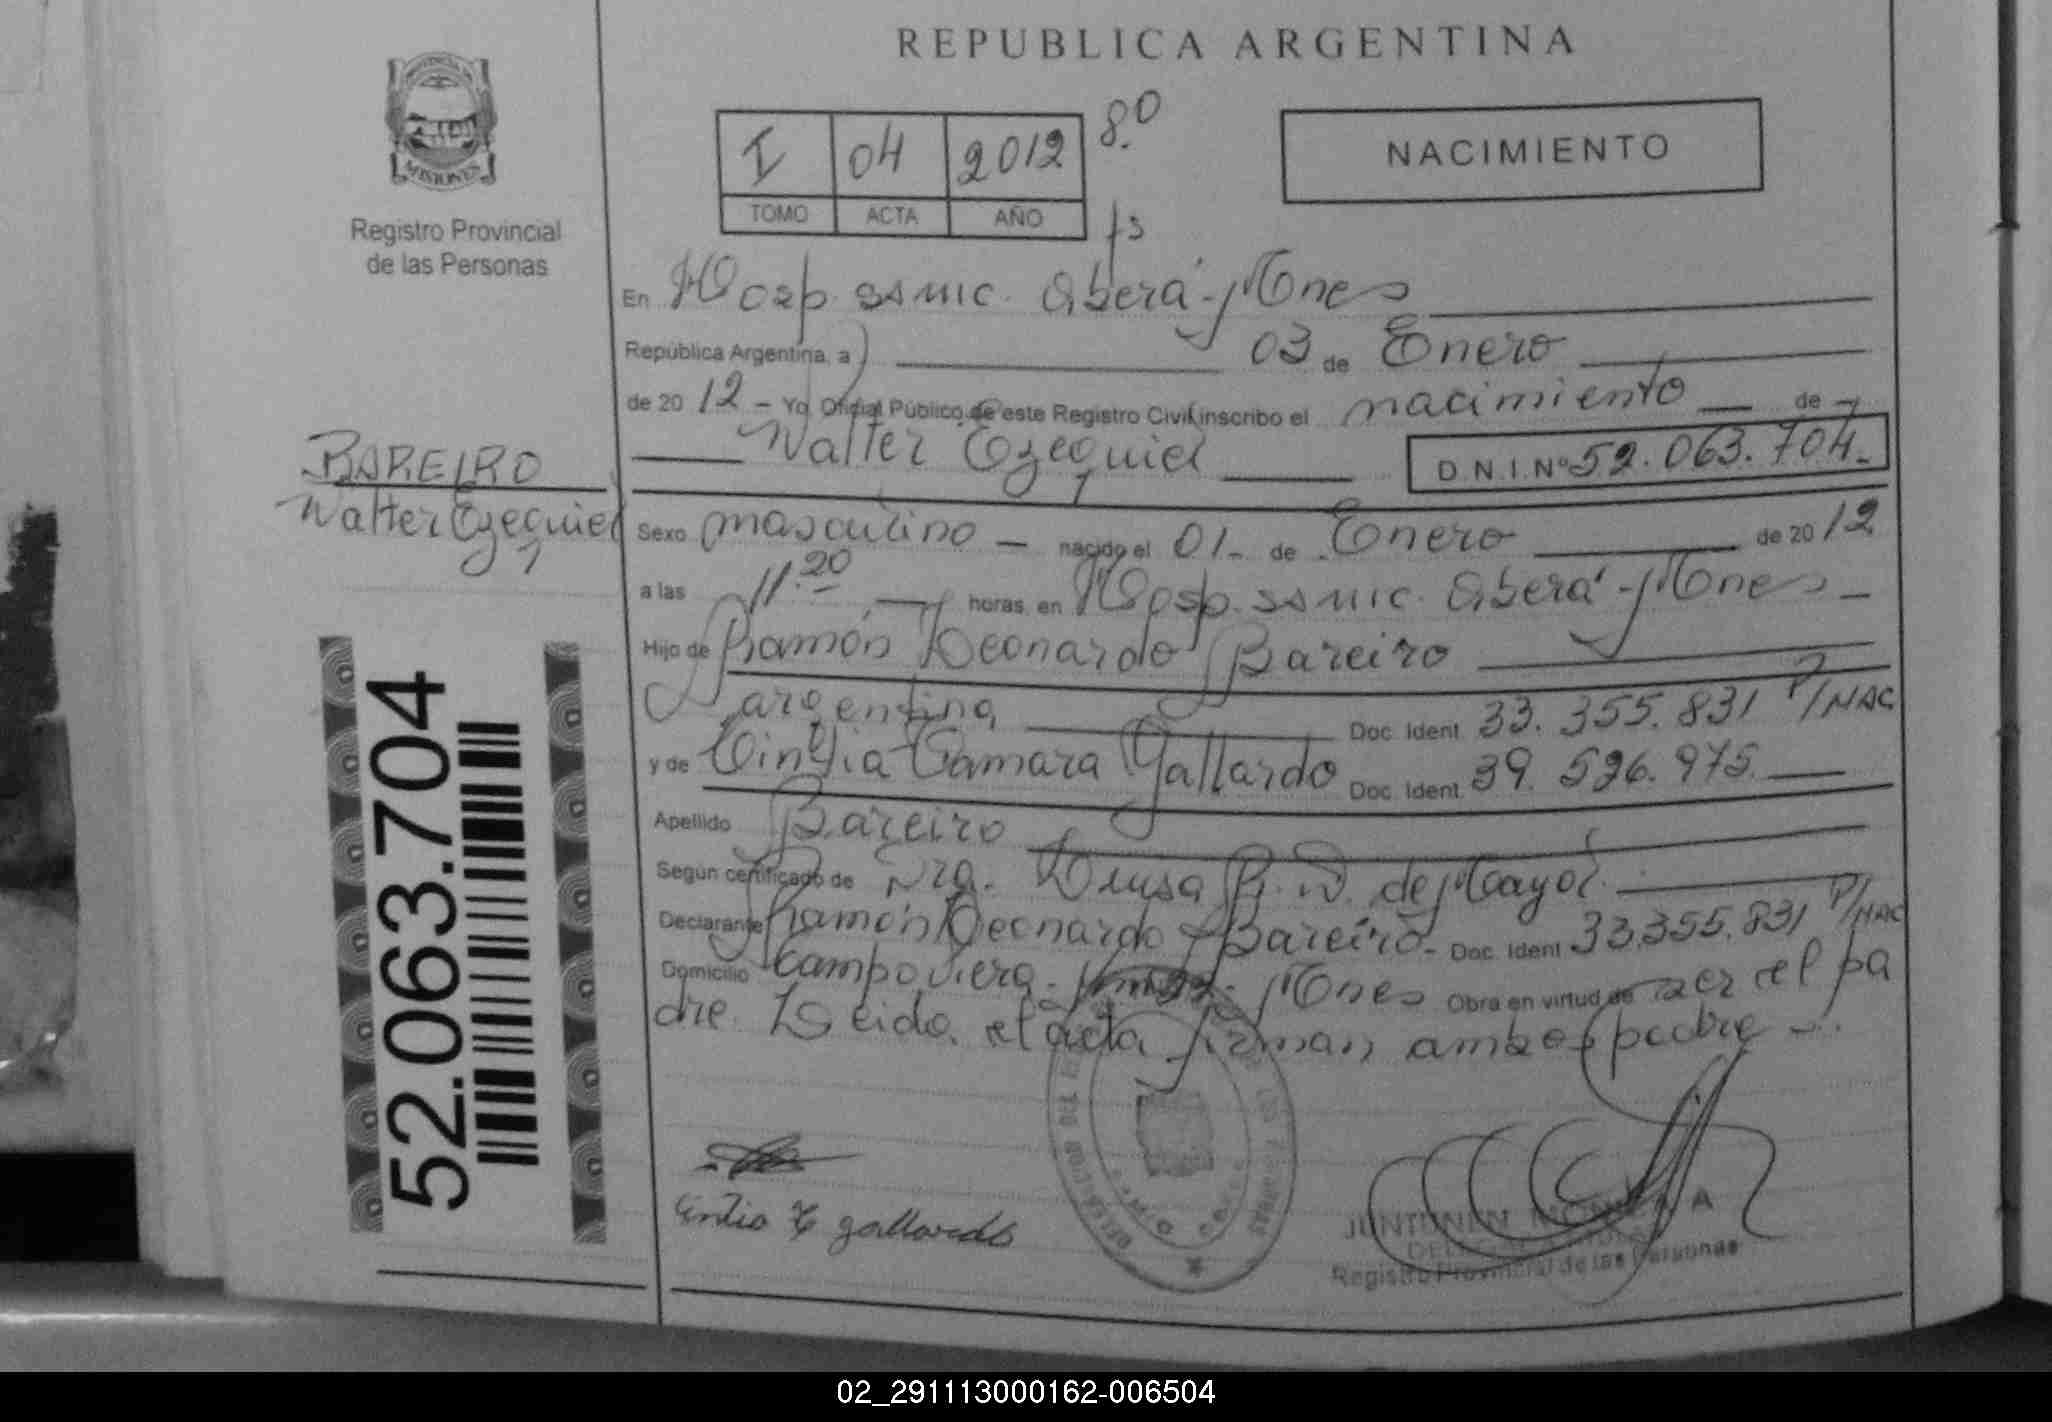 REPUBLICA ARGENTINA
PROVINCIA DE
MISIONES
Registro Provincial
de las Personas
I 04 2012 8.º
TOMO ACTA AÑO
NACIMIENTO
fs
En Hosp. SSMIC. Oberá - Mnes
República Argentina, a 03 de Enero
de 20 12 - Yo Oficial Público de este Registro Civil inscribo el nacimiento de
Walter Ezequiel D.N.I.Nº 52.063.704.
BAREIRO
Walter Ezequiel
Sexo masculino - nacido el 01 - de Enero de 20 12
a las 11.20 horas en Hosp. SSMIC. Oberá - Mnes -
Hijo de Ramón Leonardo Bareiro
argentina Doc. Ident. 33.355.831 P/NAC
y de Cintia Tamara Gallardo Doc. Ident. 39.526.975.
Apellido Bareiro
Según certificado de Dra. de Mayol
Declarante Ramón Leonardo Bareiro - Doc. Ident 33.355.831 P/NAC
Domicilio Campo Viera - Mnes Obra en virtud de ser el pa
dre. Leida el acta firman ambos padre
52.063.704
Cintia T gallardo
JUNTUNEN MONICA A
Registro Provincial de las Personas
02_291113000162-006504